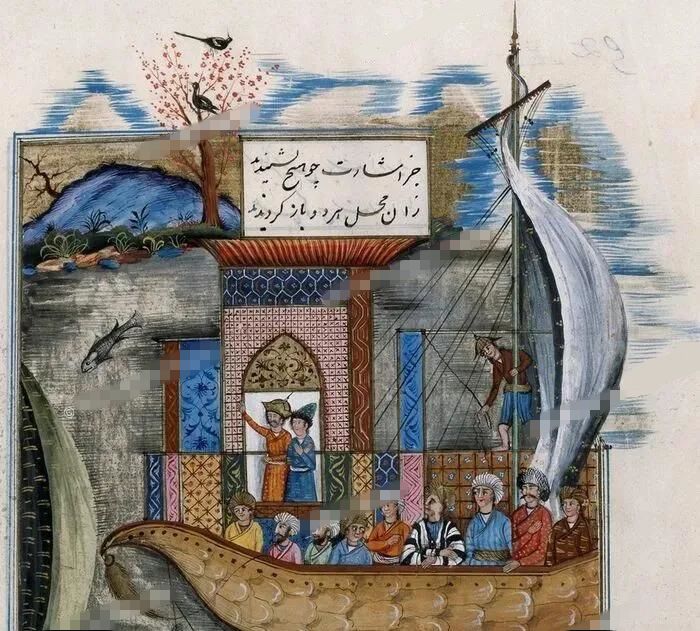 جز اشارت چو هیچ نشنیدند
زان محل هر دو باز گردیدند